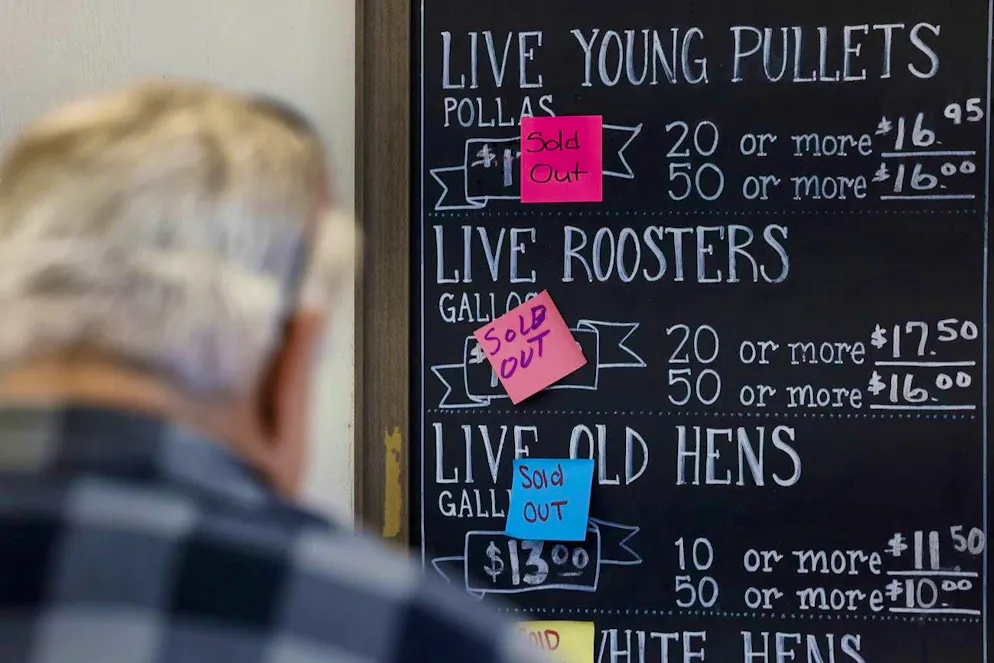 LIVE YOUNG PULLETS
POLLAS
Sold
Out
20 or more $16.95
50 or more $16.00
LIVE ROOSTERS
GALLOS
SOLD
OUT
20 or more $17.50
50 or more $16.00
LIVE OLD HENS
Sold
OUT
$13.00
10 or more $11.50
50 or more $10.00
WHITE HENS